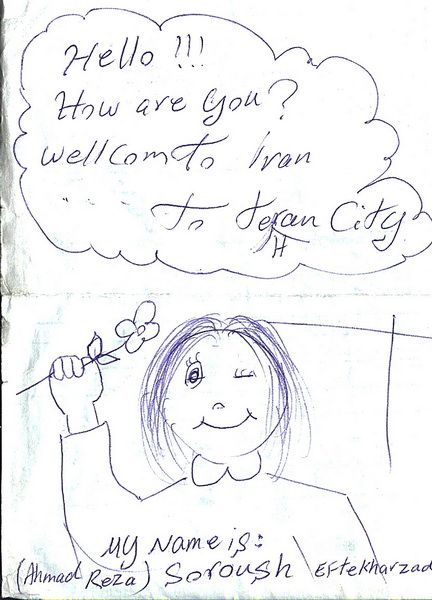 Hello !!!
How are you?
wellcom to Iran
" " " To Tehran City
My Name is:
(Ahmad Reza) Soroush Eftekharzad